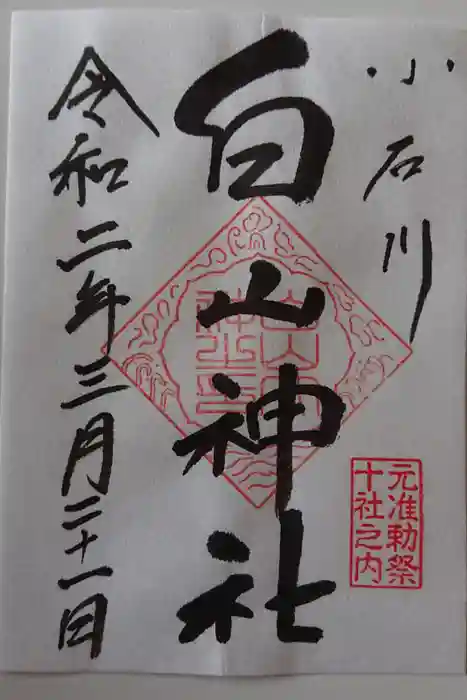 小石川
元准勅祭
十社之内
白山神社
令和二年三月二十一日